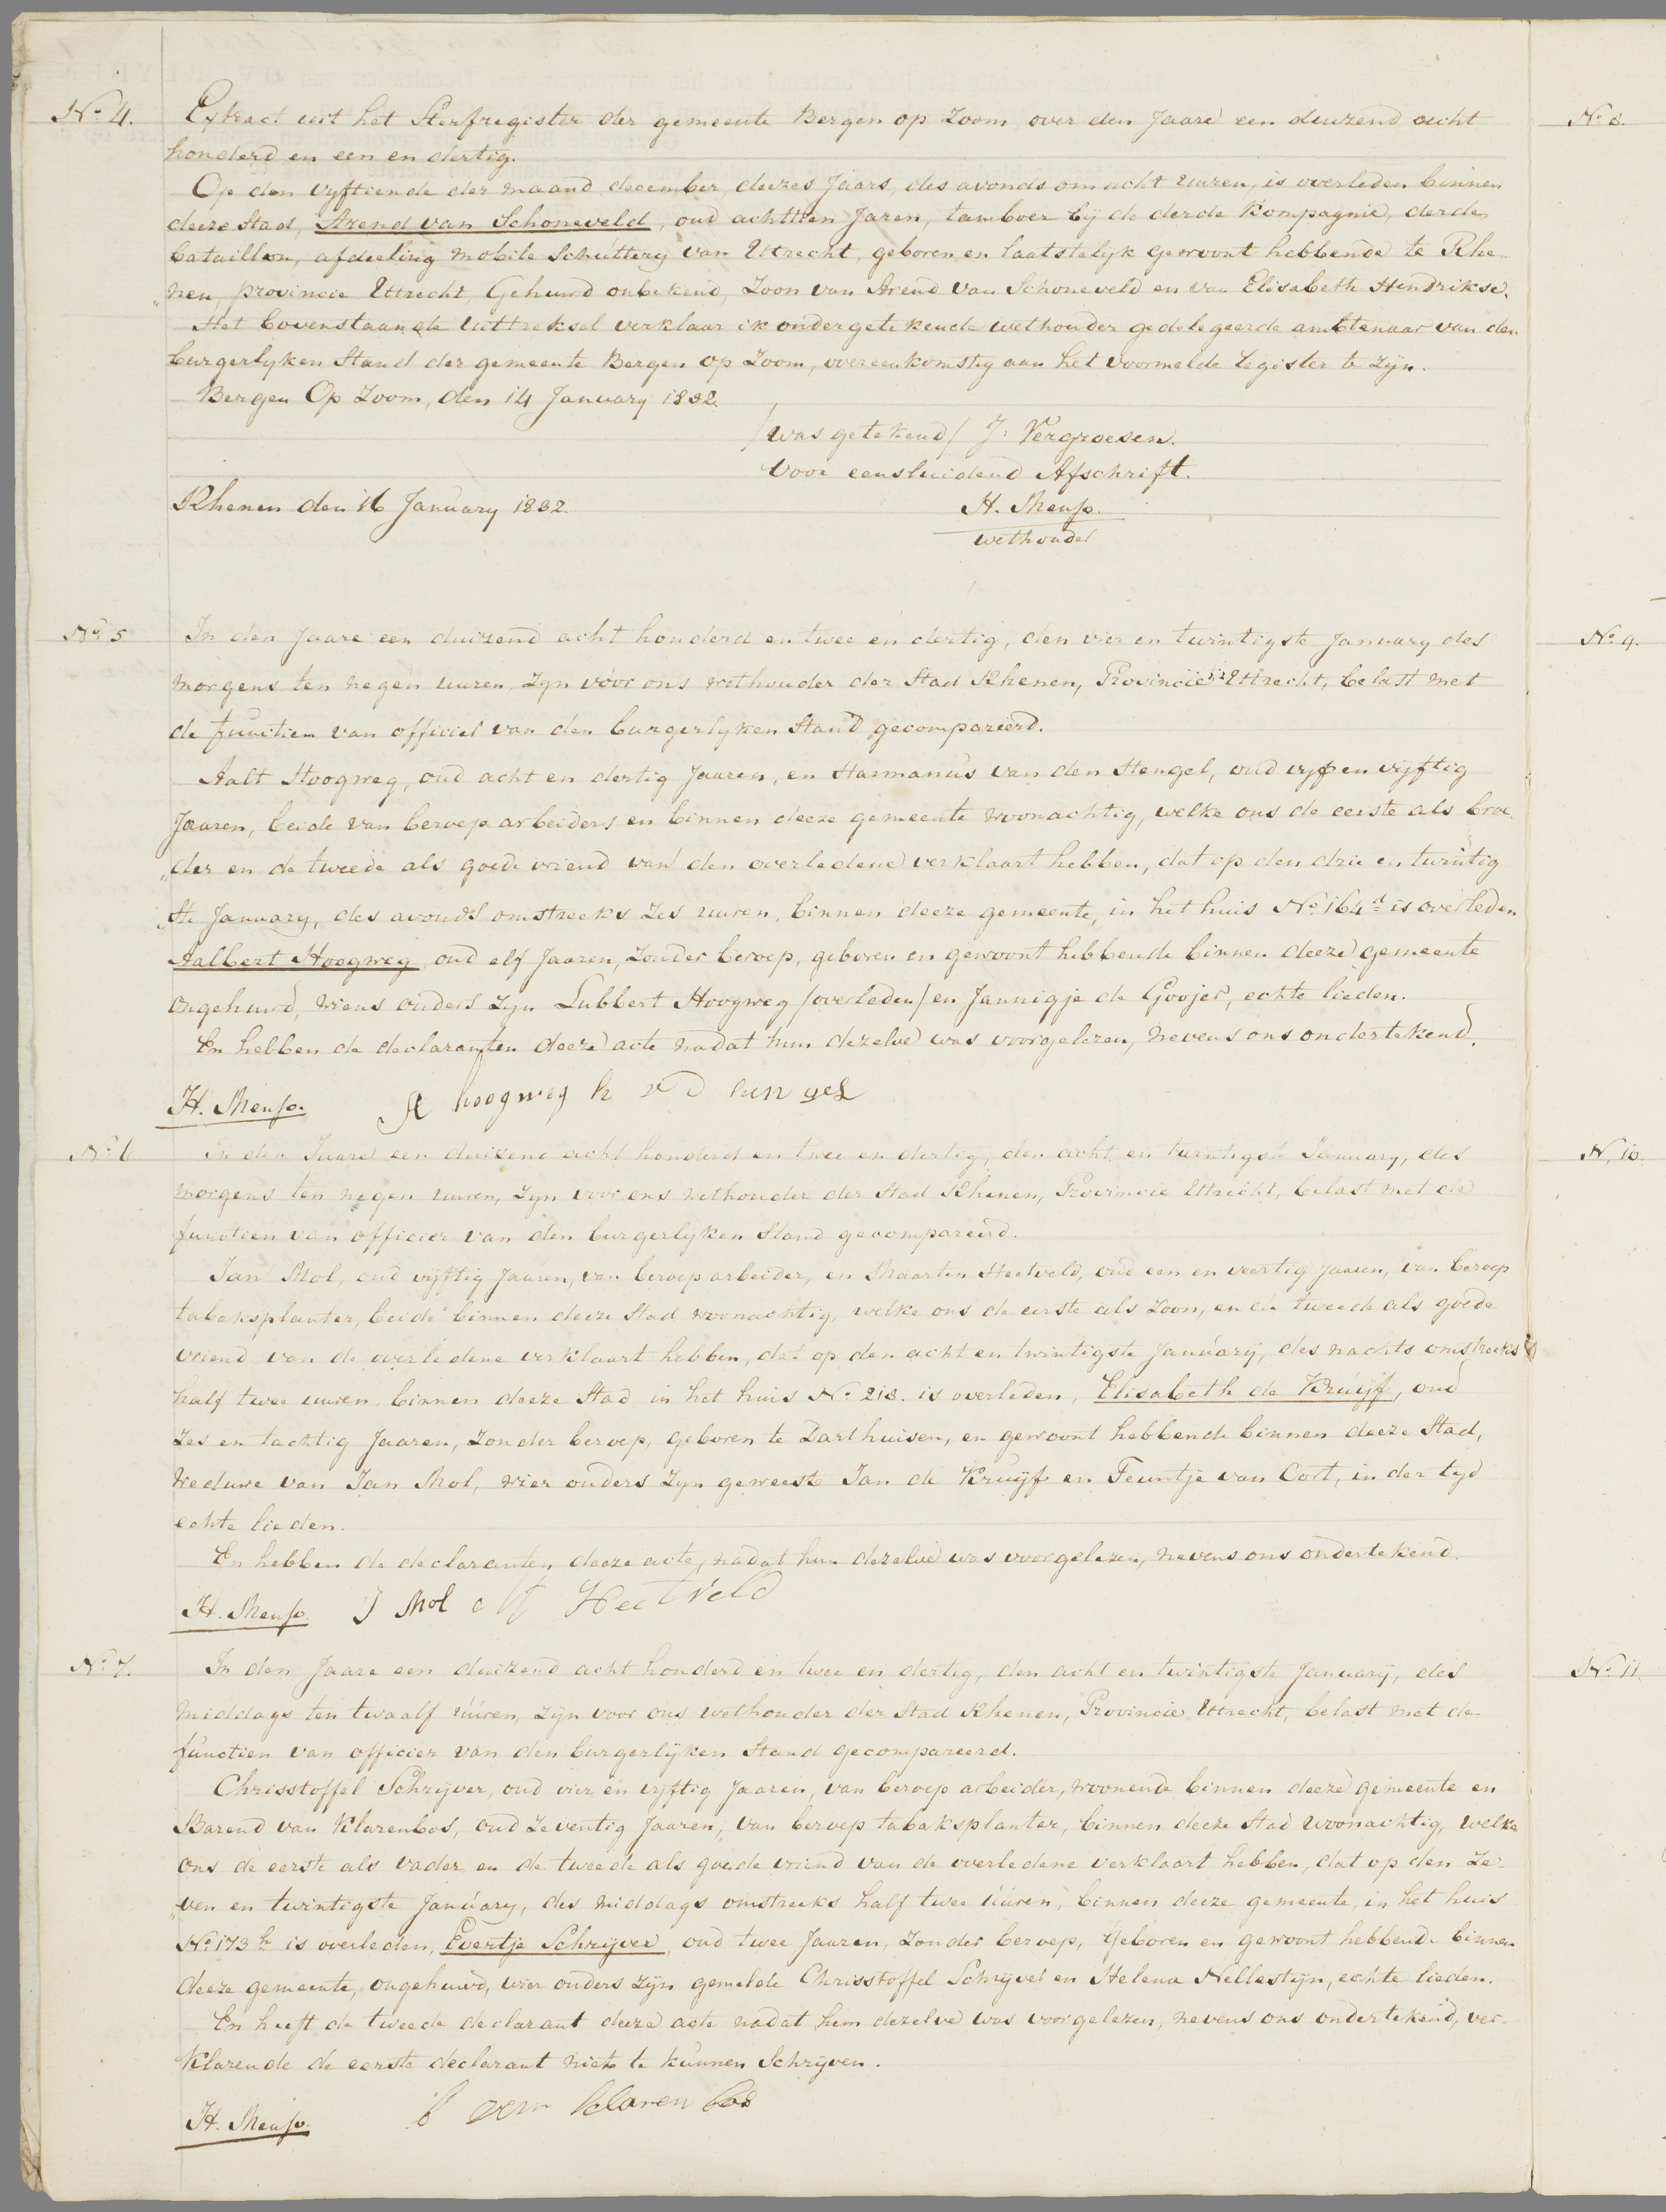 No 4. Extract uit het Sterfregister der gemeente Bergen op Zoom, over den Jaare een duizend acht
honderd en een en dertig.
Op den vyftiende der maand december, deezes Jaars, des avonds om acht uuren, is overleden binnen
deeze Stad, Arend van Schoneveld, oud achttien Jaren, tamboer bij de derde Kompagnie, derde
bataillon, afdeeling mobile Schuttery van Uttrecht, geboren en laatstelyk gewoont hebbende te Rhe„
„nen, provincie Uttrecht, Gehuwd onbekend, Zoon van Arend van Schoneveld en van Elisabeth Hendrikse.
Het bovenstaande uittreksel verklaar ik ondergetekende wethouder gedelegeerde ambtenaar van den
burgerlyken Stand der gemeente Bergen op Zoom, overeenkomstig aan het voormelde register te zyn.
Bergen Op Zoom, den 14 January 1832.
/was getekend/ J. Vergroesen.
Voor eensluidend Afschrift.
Rhenen den 16 January 1832. H. Menso.
wethouder
No 5 In den Jaare een duizend acht honderd en twee en dertig, den vier en twintigste January des
morgens ten negen uuren, zyn voor ons wethouder der Stad Rhenen, Provincie Uttrecht, belast met
de functien van officier van den burgerlyken Stand gecompareerd.
Aalt Hoogweg, oud acht en dertig Jaaren, en Harmanus van den Hengel, oud vyf en vijftig
Jaaren, beide van beroep arbeiders en binnen deeze gemeente woonachtig, welke ons de eerste als broe„
„der en de tweede als goede vriend van den overledene verklaart hebben, dat op den drie en twintig
„ste January, des avonds omstreeks zes uuren, binnen deeze gemeente, in het huis No 164 d is overleden
Aalbert Hoogweg, oud elf Jaaren, Zonder beroep, geboren en gewoont hebbende binnen deeze gemeente
ongehuwd, wiens ouders zyn Lubbert Hoogweg /overleden/ en Jannigje de Goojer, echte lieden.
En hebben de declaranten deeze acte nadat hun dezelve was voorgelezen, nevens ons ondertekend.
H. Menso. A hoogweg h v d hengel
No 6 In den Jaare een duizend acht honderd en twee en dertig, den acht en twintigste January, des
morgens ten negen uuren, zyn voor ons wethouder der Stad Rhenen, Provincie Uttrecht, belast met de
functien van officier van den burgerlyken Stand gecompareerd.
Jan Mol, oud vijftig Jaaren, van beroep arbeider, en Maarten Heetveld, oud een en veertig Jaaren, van beroep
tabaksplanter, beide binnen deeze Stad woonachtig, welke ons de eerste als zoon, en de tweede als goede
vriend van de overledene verklaart hebben, dat op den acht en twintigste January, des nachts omstreeks
half twee uuren, binnen deeze Stad in het huis No 218. is overleden, Elisabeth de Kruijf, oud
zes en tachtig Jaaren, zonder beroep, geboren te Darthuisen, en gewoont hebbende binnen deeze Stad,
weduwe van Jan Mol, wier ouders zyn geweest Jan de Kruijf en Teuntje van Cort, in der tyd
echte lieden.
En hebben de declaranten deeze acte, nadat hun dezelve was voorgelezen, nevens ons ondertekend.
H. Menso. J Mol M Heetveld
No 7. In den Jaare een duizend acht honderd en twee en dertig, den acht en twintigste January, des
middags ten twaalf uuren, zijn voor ons wethouder der Stad Rhenen, Provincie Uttrecht, belast met de
functien van officier van den burgerlijken Stand gecompareerd.
Chrisstoffel Schrijver, oud vier en vijftig Jaaren, van beroep arbeider, woonende binnen deeze gemeente en
Barend van Klarenbos, oud Zeventig Jaaren, van beroep tabaksplanter, binnen deeze Stad woonachtig, welke
ons de eerste als vader en de tweede als goede vriend van de overledene verklaart hebben, dat op den Ze„
„ven en twintigste January, des middags omstreeks half twee uuren, binnen deeze gemeente, in het huis
No 173 h is overleden, Evertje Schrijver, oud twee Jaaren, zonder beroep, geboren en gewoont hebbende binnen
deeze gemeente, ongehuwd, wier ouders zijn gemelde Chrisstoffel Schrijver en Helena Nellestijn, echte lieden.
En heeft de tweede declarant deeze acte nadat hem dezelve was voorgelezen, nevens ons ondertekend, ver„
klarende de eerste declarant niet te kunnen Schrijven.
H. Menso. b van klarenbos
No 8.
No 9.
N. 10
No 11